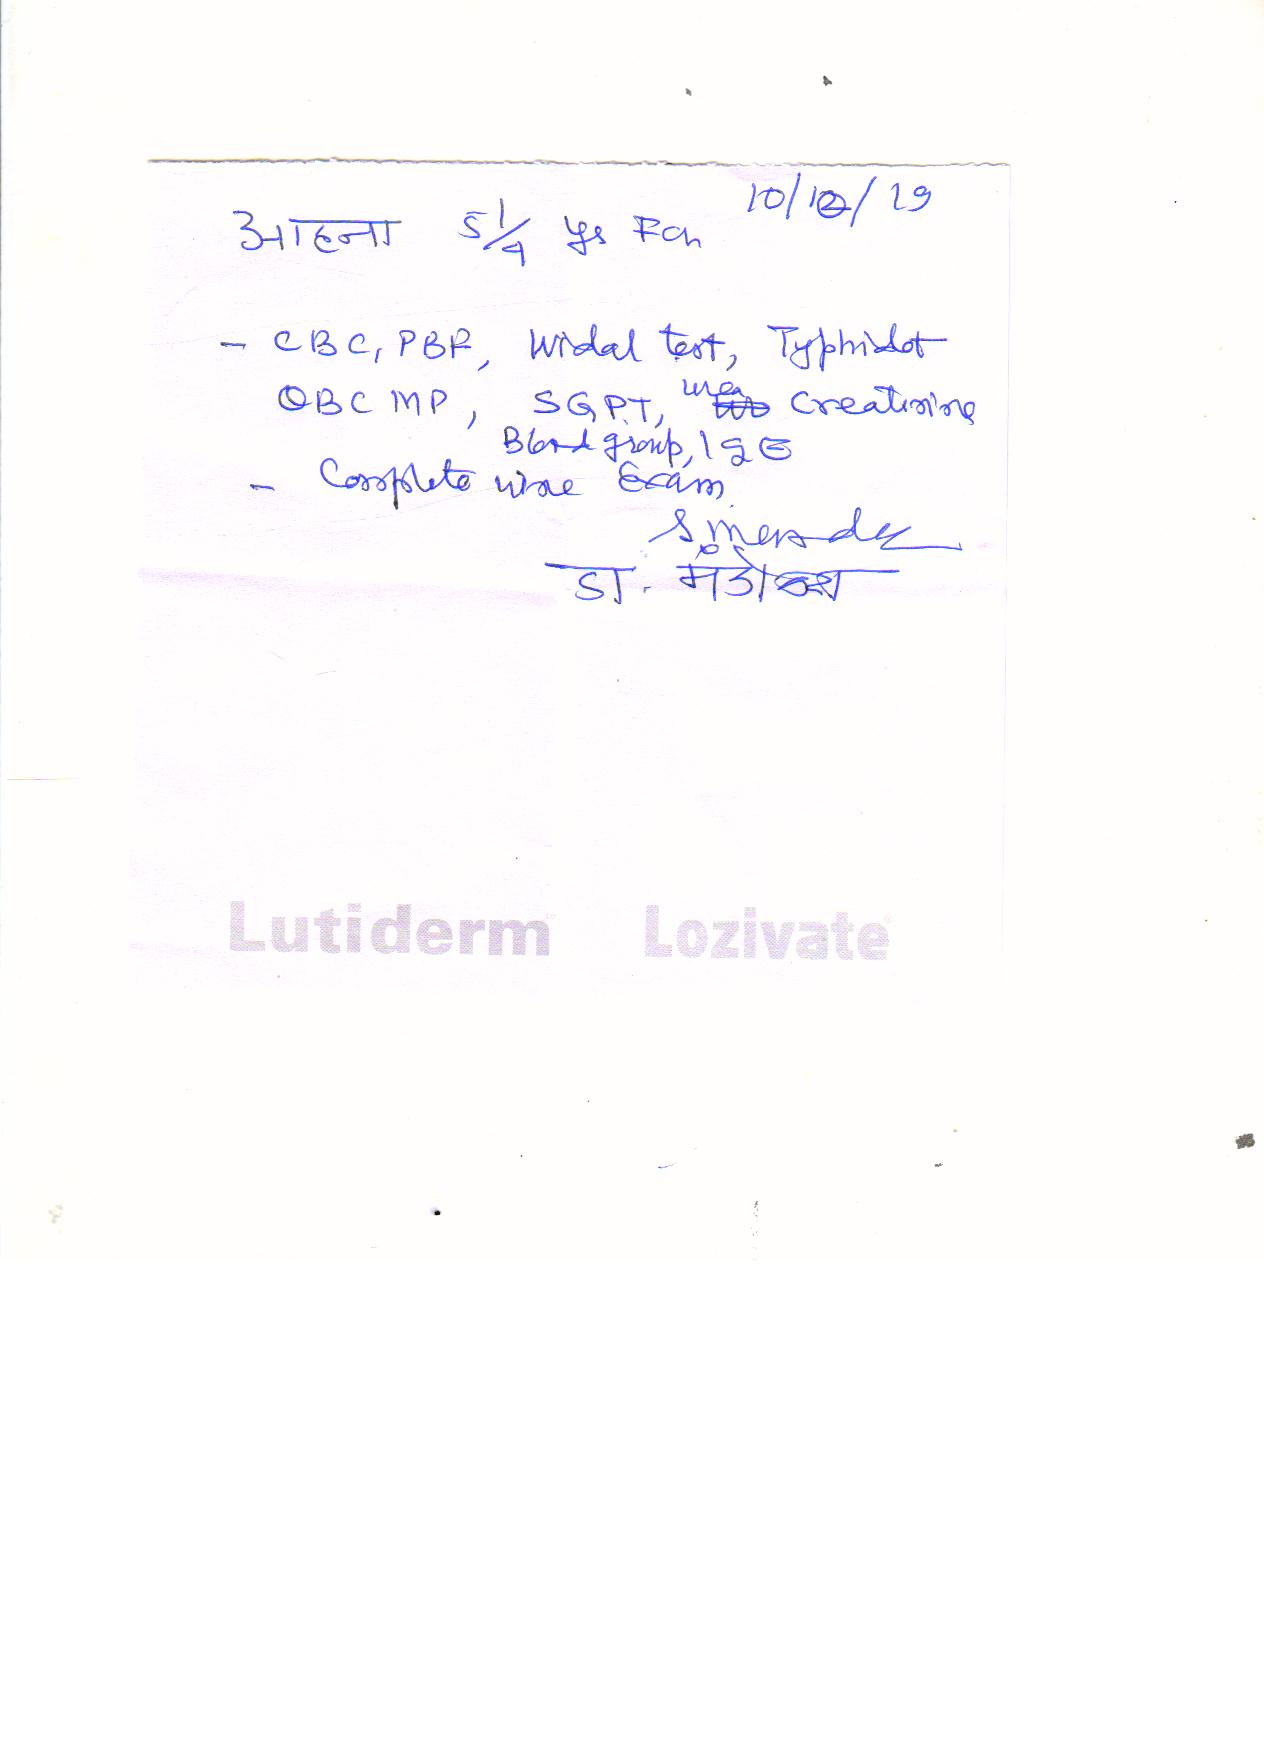 10/12/19
आहना 5 1/4 ys Fch
- CBC, PBF, Widal test, Typhidot
QBC MP, SGPT, urea Creatinine
Blood group, IgE
- Complete urine Exam
डा.
Lutiderm Lozivate